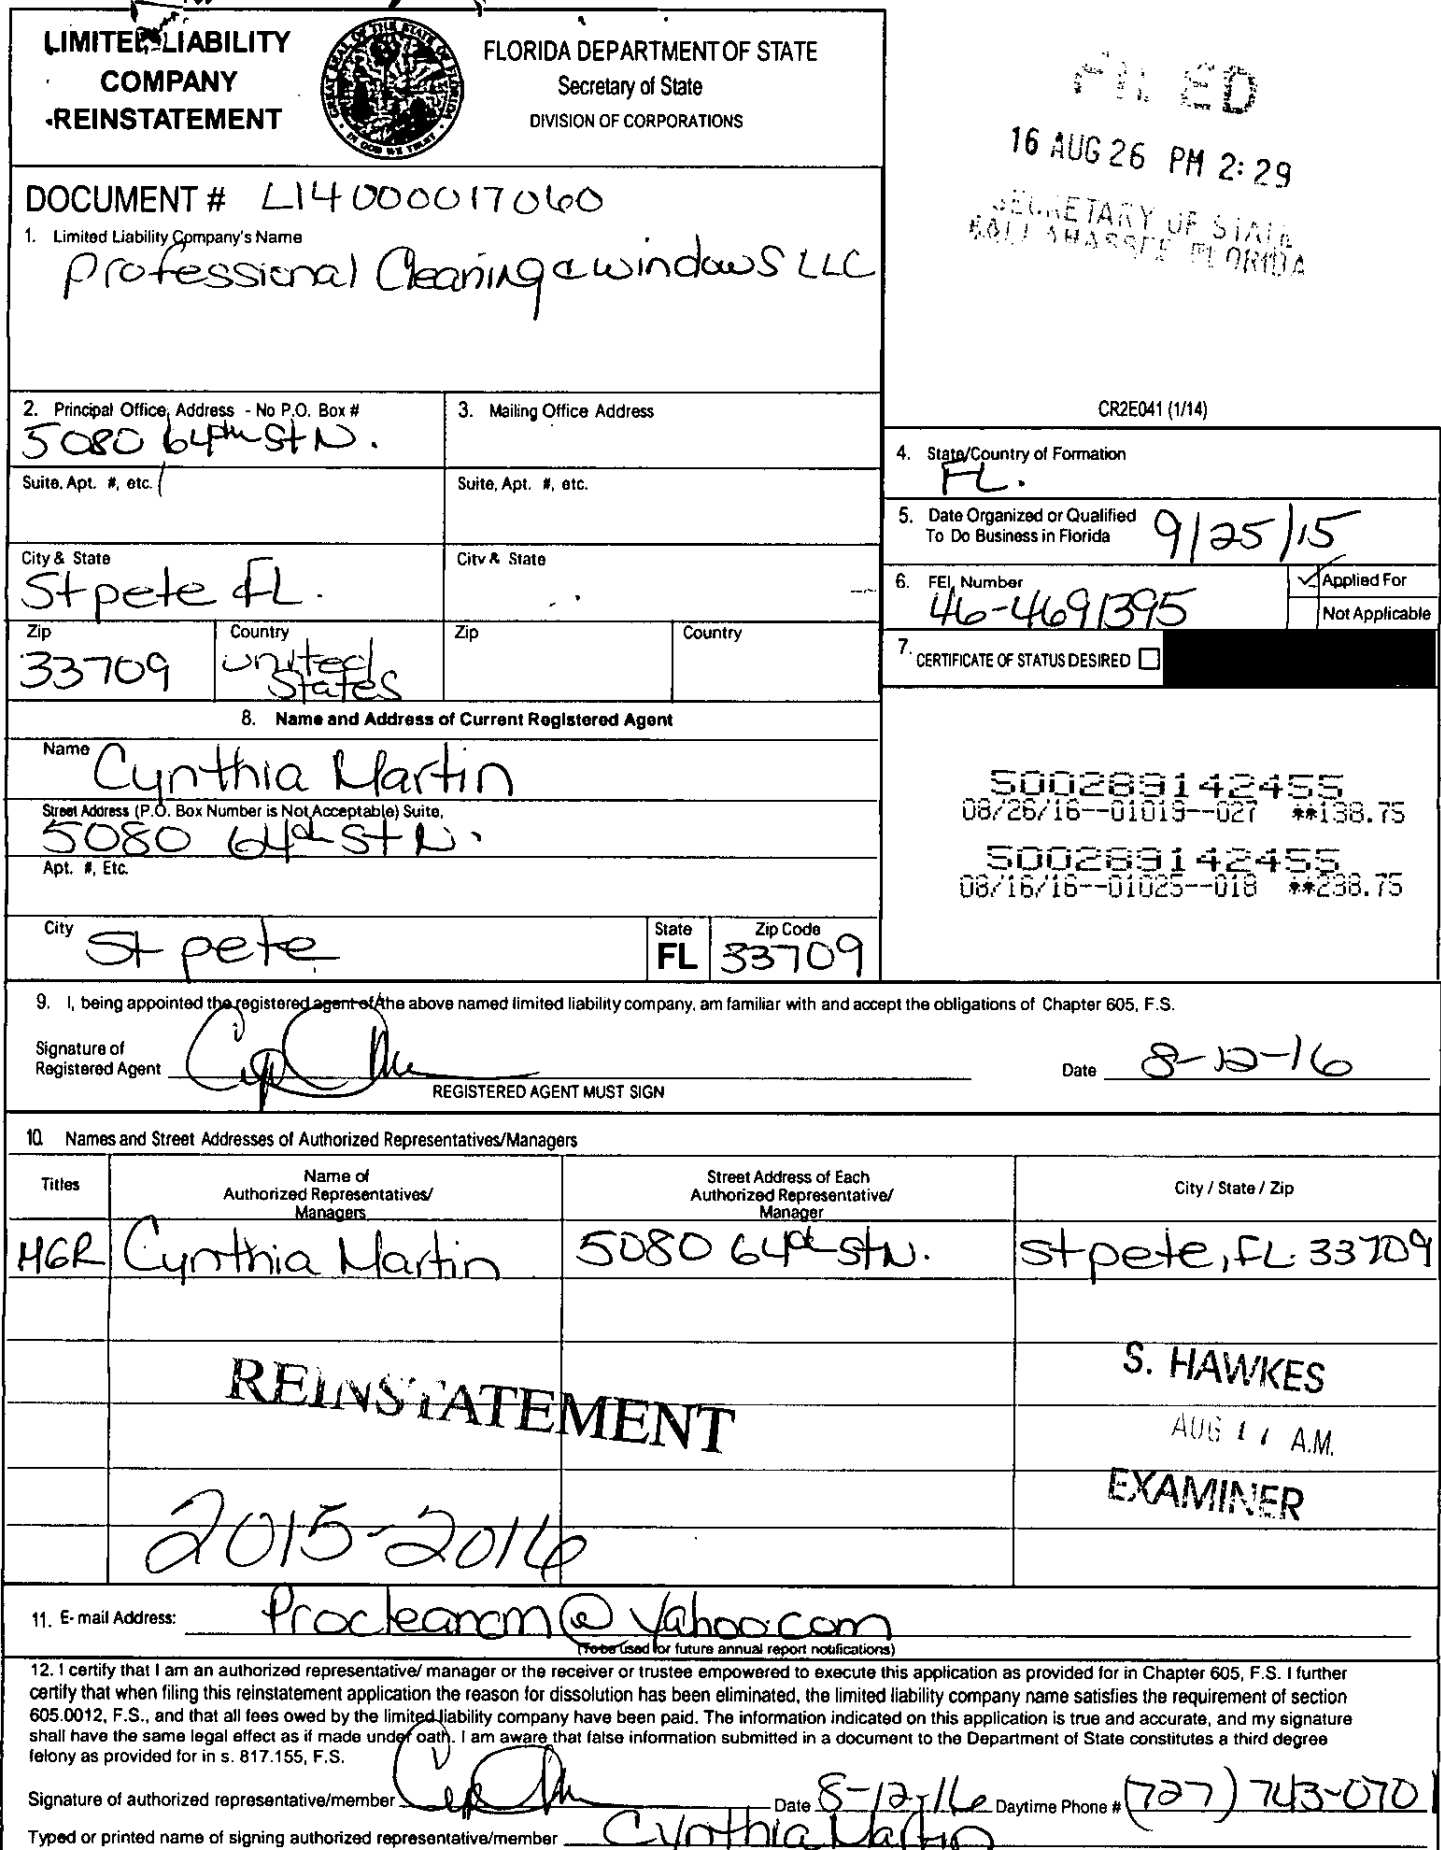 LIMITED LIABILITY
COMPANY
REINSTATEMENT
FLORIDA DEPARTMENT OF STATE
Secretary of State
DIVISION OF CORPORATIONS
FILED
16 AUG 26 PM 2:29
SECRETARY OF STATE
TALLAHASSEE FLORIDA
DOCUMENT # L14000017060
1. Limited Liability Company's Name
Professional Cleaning & windows LLC
CR2E041 (1/14)
2. Principal Office Address - No P.O. Box #
5080 64th St N.
3. Mailing Office Address
Suite, Apt. #, etc.
Suite, Apt. #, etc.
City & State
St pete FL.
City & State
Zip
33709
Country
United States
Zip
Country
4. State/Country of Formation
FL.
5. Date Organized or Qualified
To Do Business in Florida
9/25/15
6. FEI Number
46-4691395
✓ Applied For
Not Applicable
7. CERTIFICATE OF STATUS DESIRED
8. Name and Address of Current Registered Agent
Name Cynthia Martin
Street Address (P.O. Box Number is Not Acceptable) Suite,
5080 64th St N.
Apt. #, Etc.
City St pete
State
FL
Zip Code
33709
500289142455
08/26/16--01019--027 **138.75
500289142455
08/16/16--01025--018 **238.75
9. I, being appointed the registered agent of the above named limited liability company, am familiar with and accept the obligations of Chapter 605, F.S.
Signature of
Registered Agent
REGISTERED AGENT MUST SIGN
Date 8-12-16
10. Names and Street Addresses of Authorized Representatives/Managers
Titles
Name of
Authorized Representatives/
Managers
Street Address of Each
Authorized Representative/
Manager
City / State / Zip
MGR Cynthia Martin 5080 64th St N. St pete, FL. 33709
REINSTATEMENT
2015-2016
S. HAWKES
AUG A.M.
EXAMINER
11. E-mail Address: Procleancm@yahoo.com
(To be used for future annual report notifications)
12. I certify that I am an authorized representative/ manager or the receiver or trustee empowered to execute this application as provided for in Chapter 605, F.S. I further
certify that when filing this reinstatement application the reason for dissolution has been eliminated, the limited liability company name satisfies the requirement of section
605.0012, F.S., and that all fees owed by the limited liability company have been paid. The information indicated on this application is true and accurate, and my signature
shall have the same legal effect as if made under oath. I am aware that false information submitted in a document to the Department of State constitutes a third degree
felony as provided for in s. 817.155, F.S.
Signature of authorized representative/member
Date 8-12-16 Daytime Phone # (727) 743-0701
Typed or printed name of signing authorized representative/member Cynthia Martin